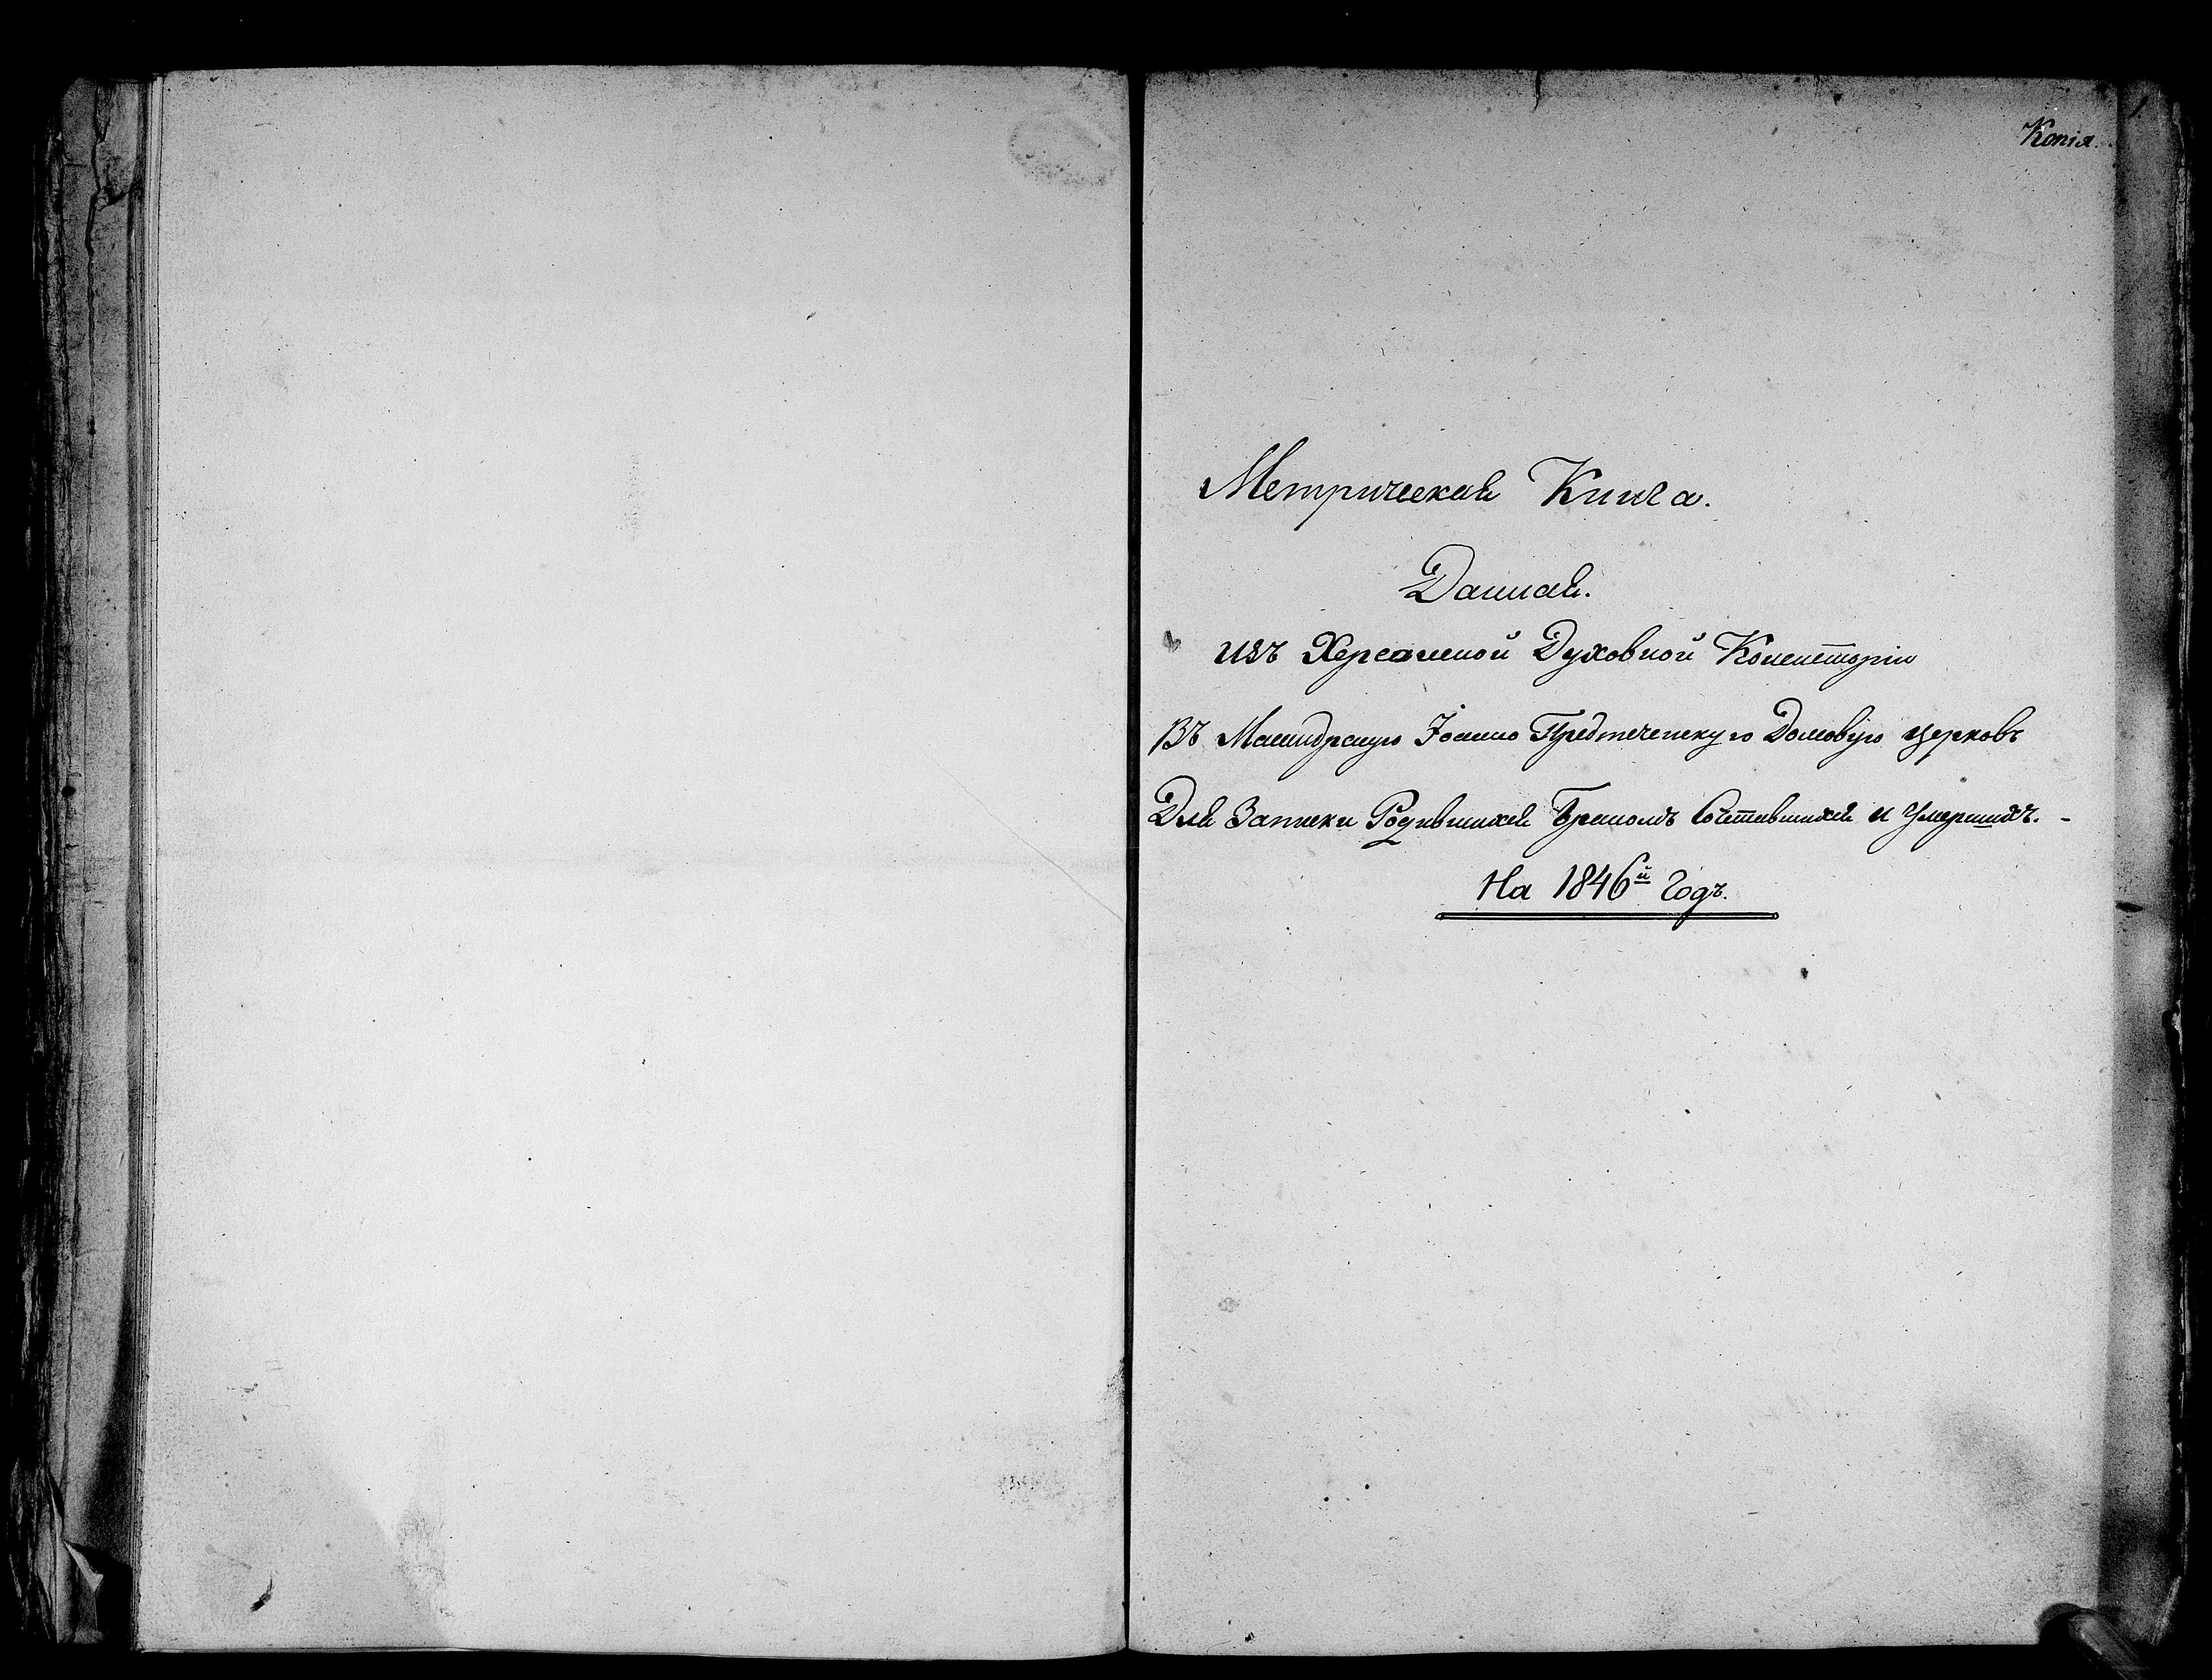 1.
Копія.
Метрическая Книга.
Данная.
изъ Херсонской Духовной Консисторіи
Въ Масандрскую Іоанно Предтеченскую Домовую церковь
Для Записки Родившихся Бракомъ Сочетавшихся и Умершихъ. -
На 1846й Годъ.